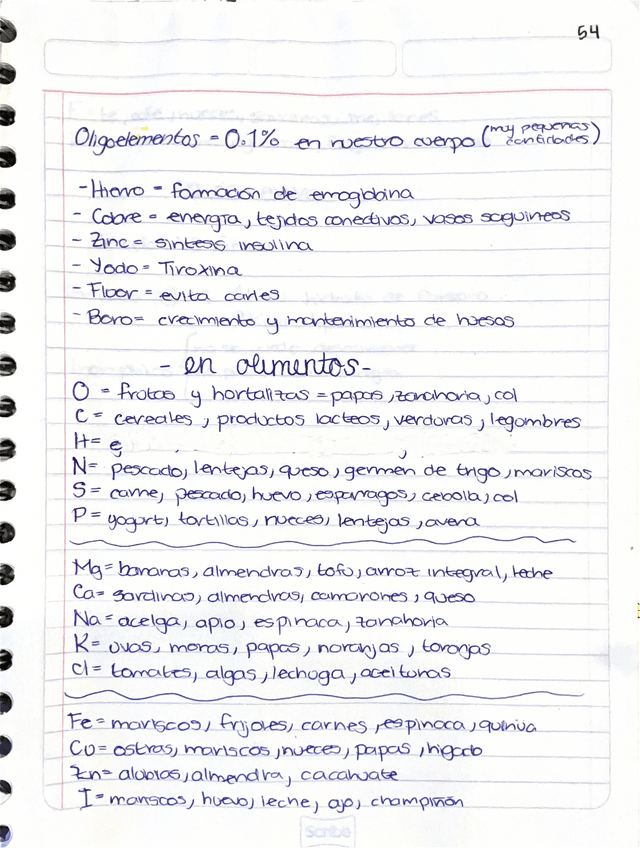 54
Oligoelementos = 0.1% en nuestro cuerpo (muy pequeñas cantidades)
- Hierro = formación de emoglobina
- Cobre = energía, tejidos conectivos, vasos saguineos
- Zinc = sintesis insulina
- Yodo = Tiroxina
- Floor = evita caries
- Boro = crecimiento y mantenimiento de huesos
- en alimentos -
O = frutas y hortalizas = papas, zanahoria, col
C = cereales, productos lacteos, verduras, legombres
H =
N = pescado, lentejas, queso, germen de trigo, mariscos
S = carne, pescado, huevo, esparragos, cebolla, col
P = yogurt, tortillas, nueces, lentejas, avena
Mg = bananas, almendras, tofu, arroz integral, leche
Ca = sardinas, almendras, camarones, queso
Na = acelga, apio, espinaca, zanahoria
K = uvas, moras, papas, naranjas, toronjas
Cl = tomates, algas, lechuga, aceitunas
Fe = mariscos, frijoles, carnes, espinaca, quinua
Cu = ostras, mariscos, nueces, papas, higado
Zn = alubias, almendra, cacahuate
I = mariscos, huevo, leche, ajo, champiñón
Scribe